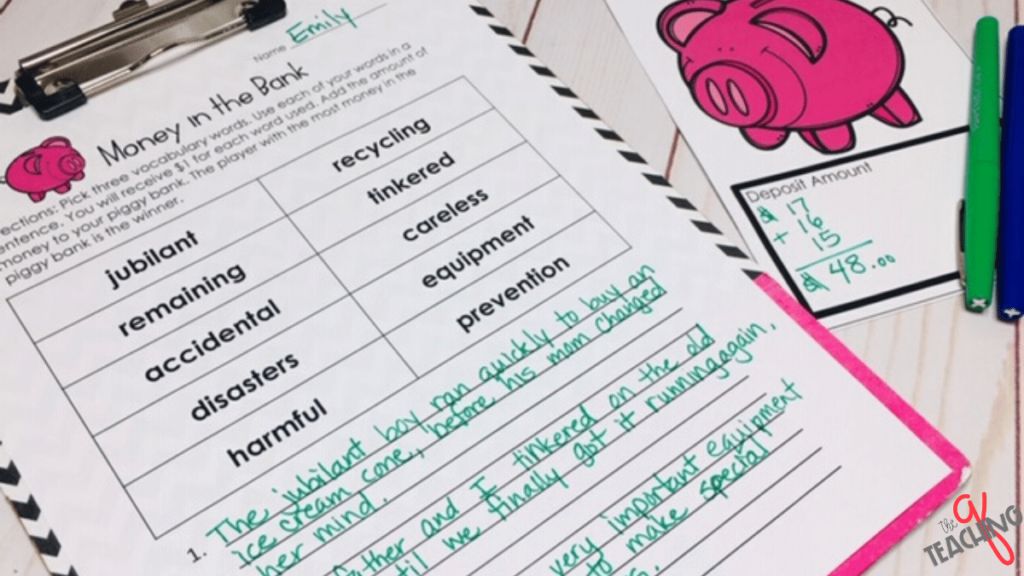 Name Emily
Money in the Bank
Pick three vocabulary words. Use each of your words in a
You will receive $1 for each word used. Add the amount of
money to your piggy bank. The player with the most money in the
piggy bank is the winner.
jubilant recycling
remaining tinkered
accidental careless
disasters equipment
harmful prevention
1. The jubilant boy ran quickly to buy an
ice cream cone, before his mom changed
her mind.
and I tinkered on the old
we finally got it running again.
very important equipment
to make special
Deposit Amount
$ 17
+ 16
15
$ 48.00
the
TEACHING